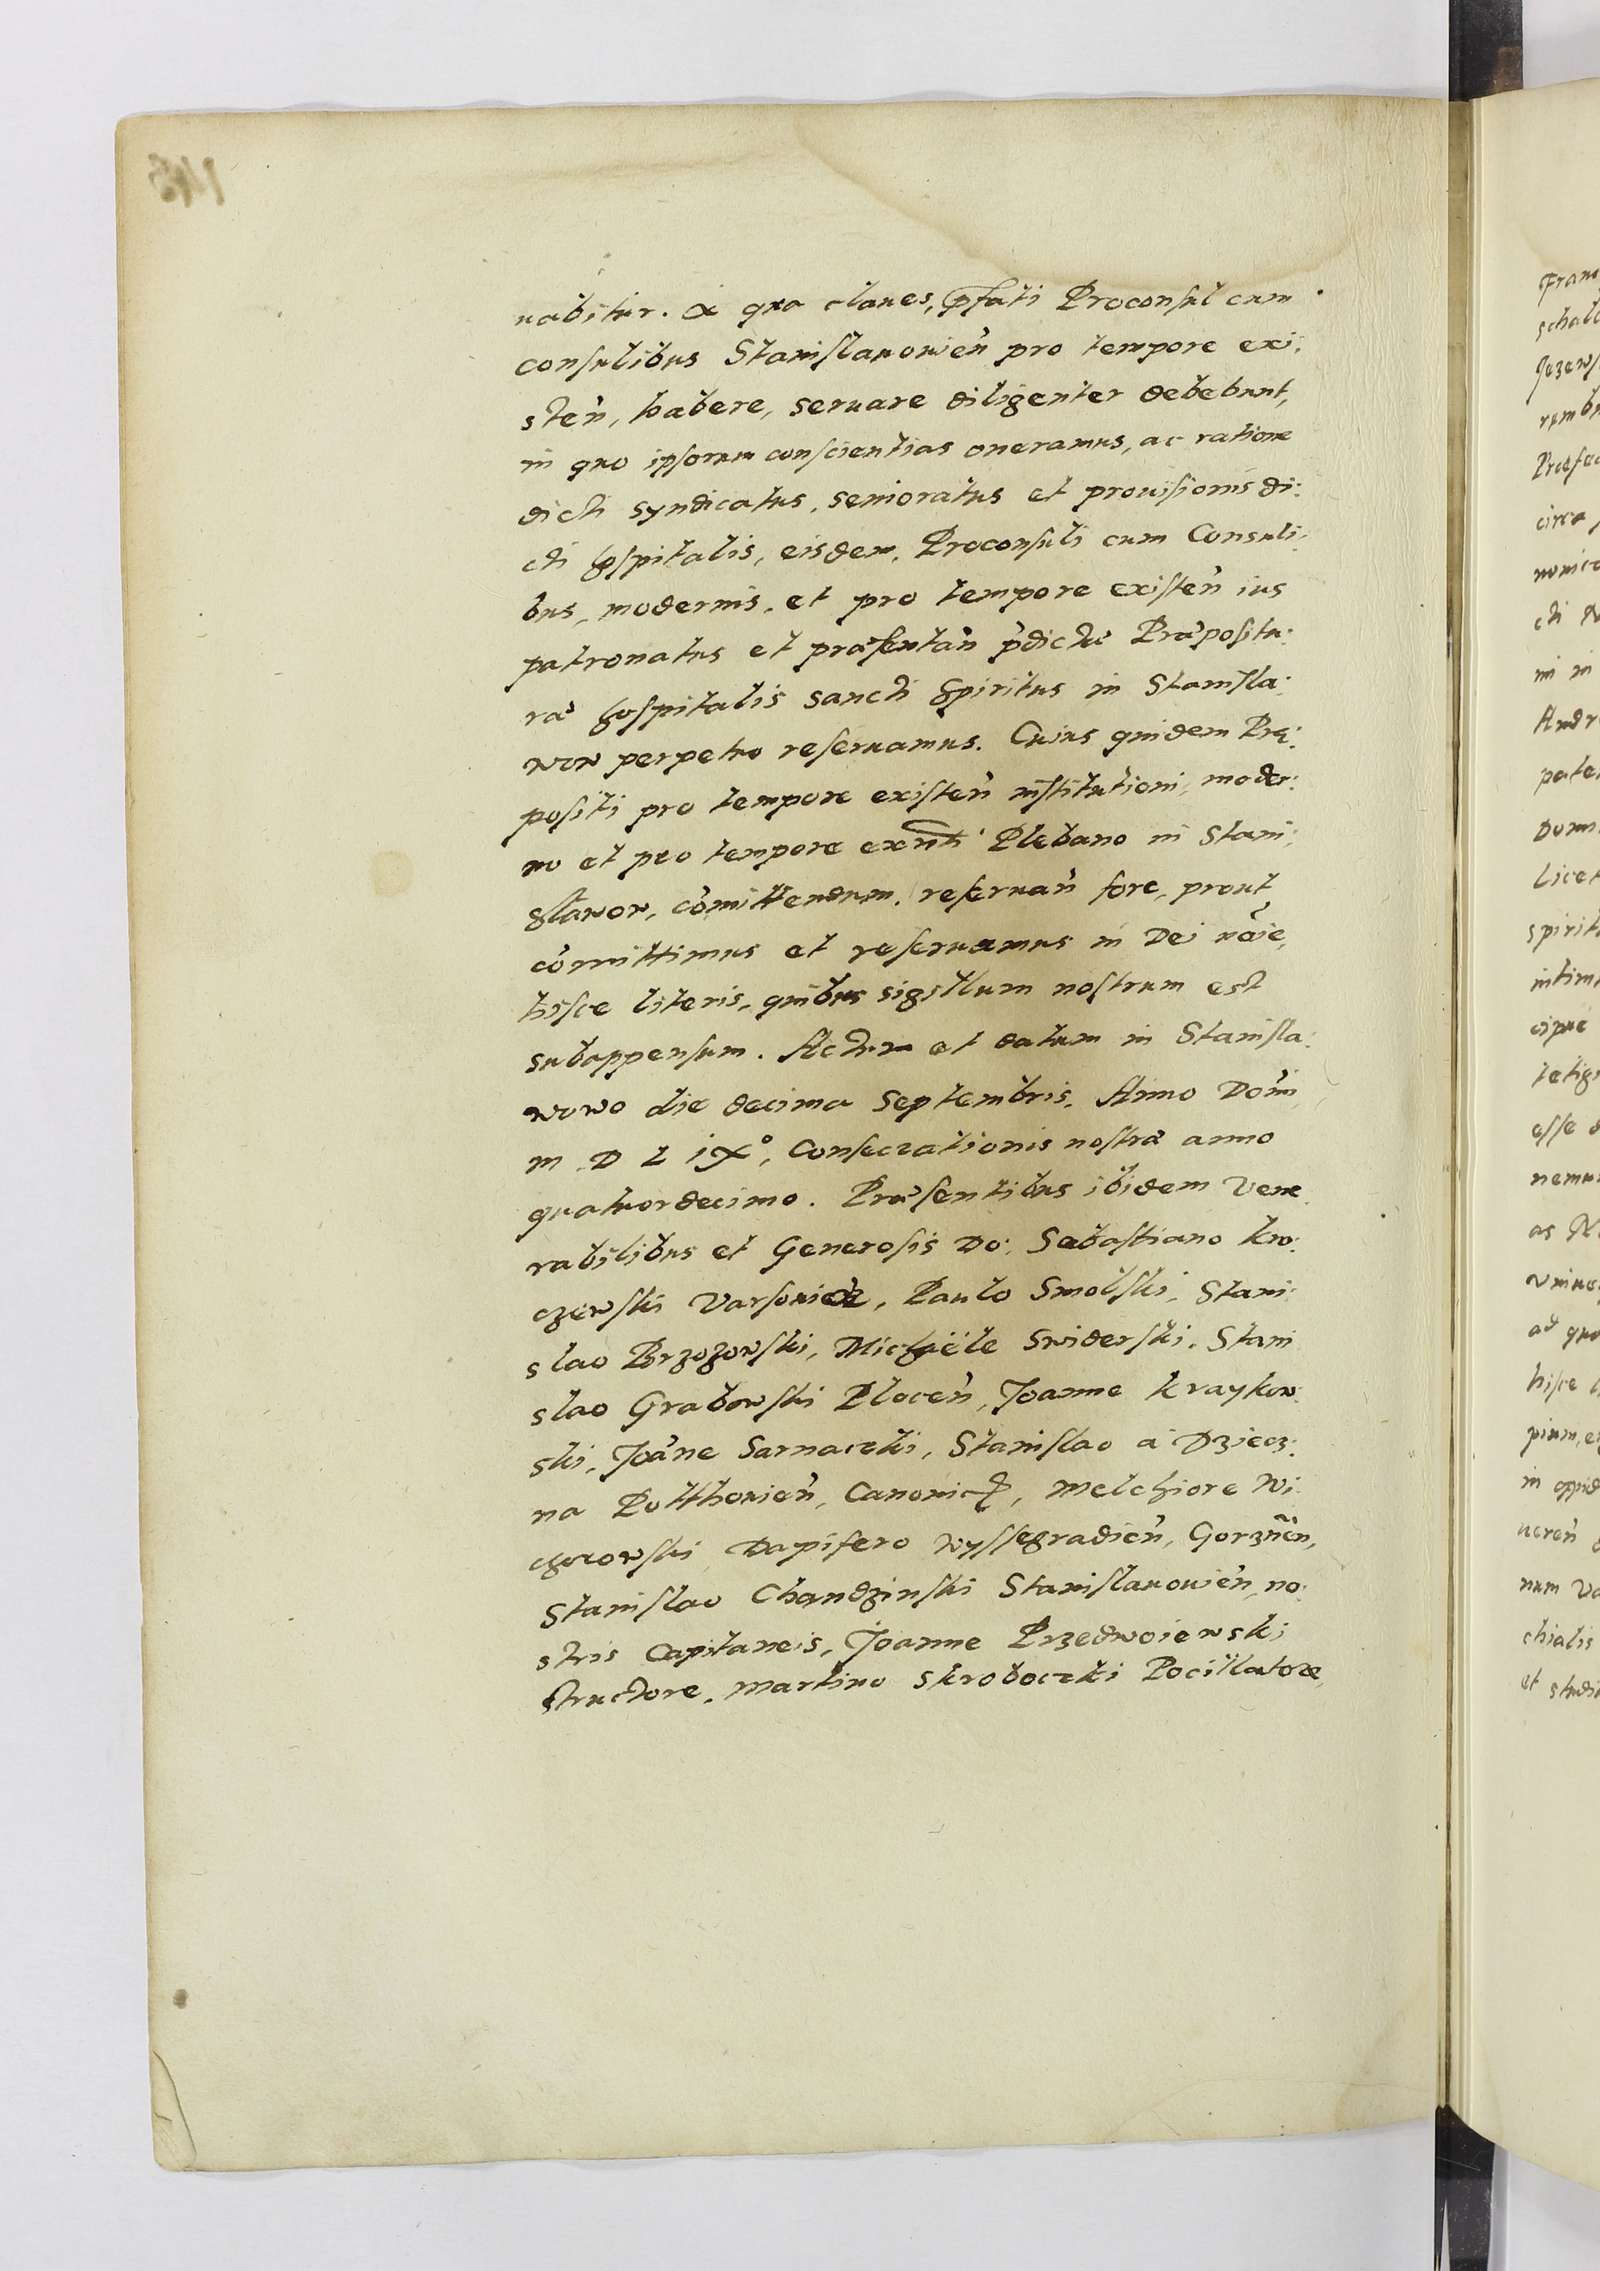 uabitur. A quo claues, pfati Proconsul cum
consulibus Stanislauouien̄ pro tempore exi:
sten̄, habere, seruare diligenter debebunt,
in quo ipsorum conscientias oneramus, ac ratione
dicti syndicatus, senioratus et prouisionis di:
cti hospitalis, eisdem, Proconsuli cum Consuli:
bus, modernis, et pro tempore existen̄ ius
patronatus et præsentan̄ p̄dictæ Præpositu:
ræ hospitalis sancti Spiritus in Stanisla:
wow perpetuo reseruamus. Cuius quidem Præ:
positi pro tempore existen̄ institutioni, moder:
no et pro tempore exn̄ti Plebano in Stani:
slawow, com̄ittendum, reseruan̄ fore, prout
com̄ittimus et reseruamus in Dei no͞ie,
hisce literis, quibus sigillum nostrum est
subappensum. Actum et datum in Stanisla:
wowo die decima Septembris, Anno Dom̄
M D L iXº, Consecrationis nostræ anno
quatuordecimo. Præsentibus ibidem Vene
rabilibus et Generosis Do: Sebastiano Kro:
czewski Varsouien̄, Paulo Smolski, Stani
slao Brzozowski, Michaële Swiderski, Stani
slao Grabowski Plocen̄, Joanne Kraykow:
ski, Joāne Sarnaczki, Stanislao a Dziecz:
na Polthouien̄, Canonic, Melchiore Wi
chorowski Dapifero Wyssegradien̄, Gorznen̄,
Stanislao Chandzinski Stanislauouien̄, no:
stris Capitaneis, Joanne Przedwoiewski
structore, Martino Skroboczki Pocillatore,
Franc
schalc
Jezews
rumb
Præfec
circa
nonico
cti
ni in
Andr
pate
Dom
Licet
spirit
intim
cipue
tetigi
esse
nemu
as
vniue
ad quo
hisce
pium, e
in oppid
ueren̄
num Va
chialis
et studi